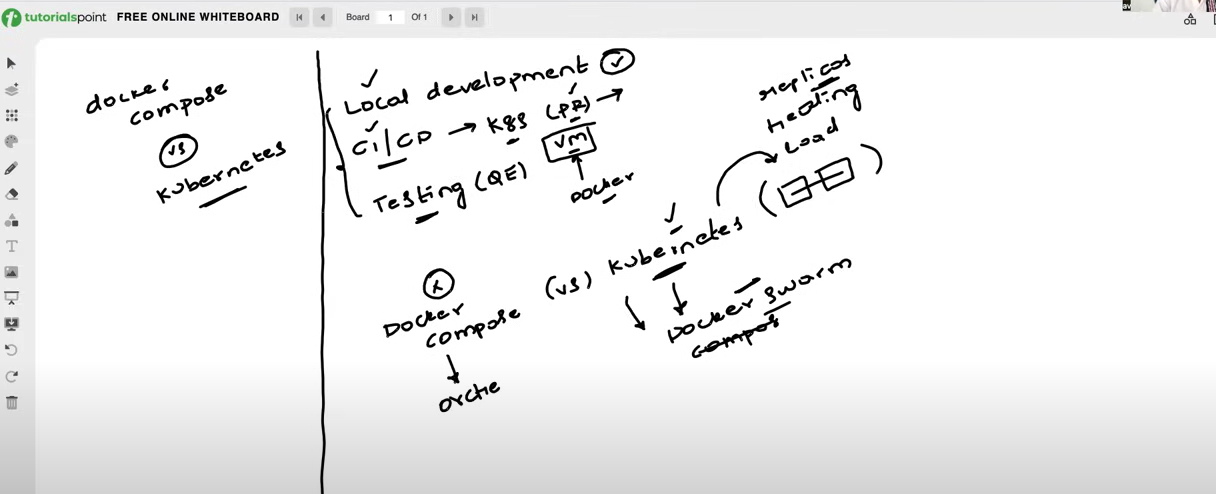 tutorialspoint FREE ONLINE WHITEBOARD Board 1 Of 1
docker
compose
vs
Kubernetes
Local development
CI/CD → K8s (PR) →
VM
Testing (QE)
Docker
replicas
Healing
Load
Docker
compose
(vs) Kubernetes
Docker swarm
compos
orche
T